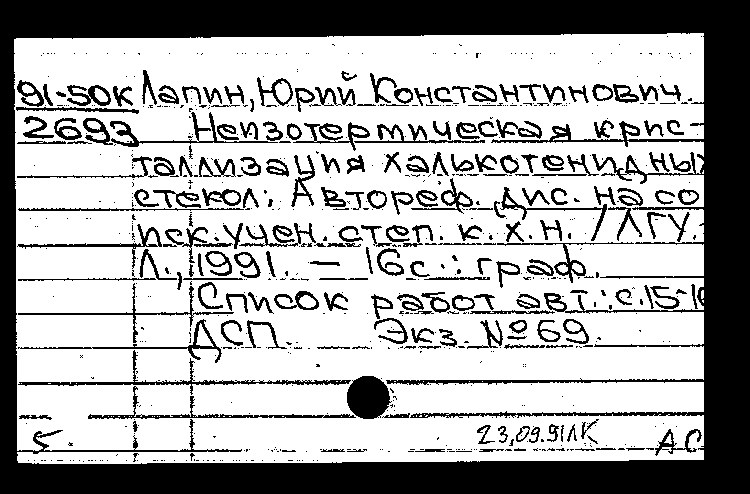 91-50К Лапин, Юрий Константинович.
2693 Неизотермическая крис-
таллизация халькотенидных
стекол: Автореф. дис. на со
иск. учен. степ. к. х. н. / ЛГУ.-
Л., 1991. — 16с.: граф.
Список работ авт.: с.15-16
ДСП. Экз. №69.
5. 23,09.91ЛК АС